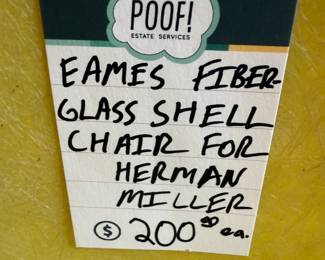 POOF!
ESTATE SERVICES
EAMES FIBER-
GLASS SHELL
CHAIR FOR
HERMAN
MILLER
$ 200 00 ea.